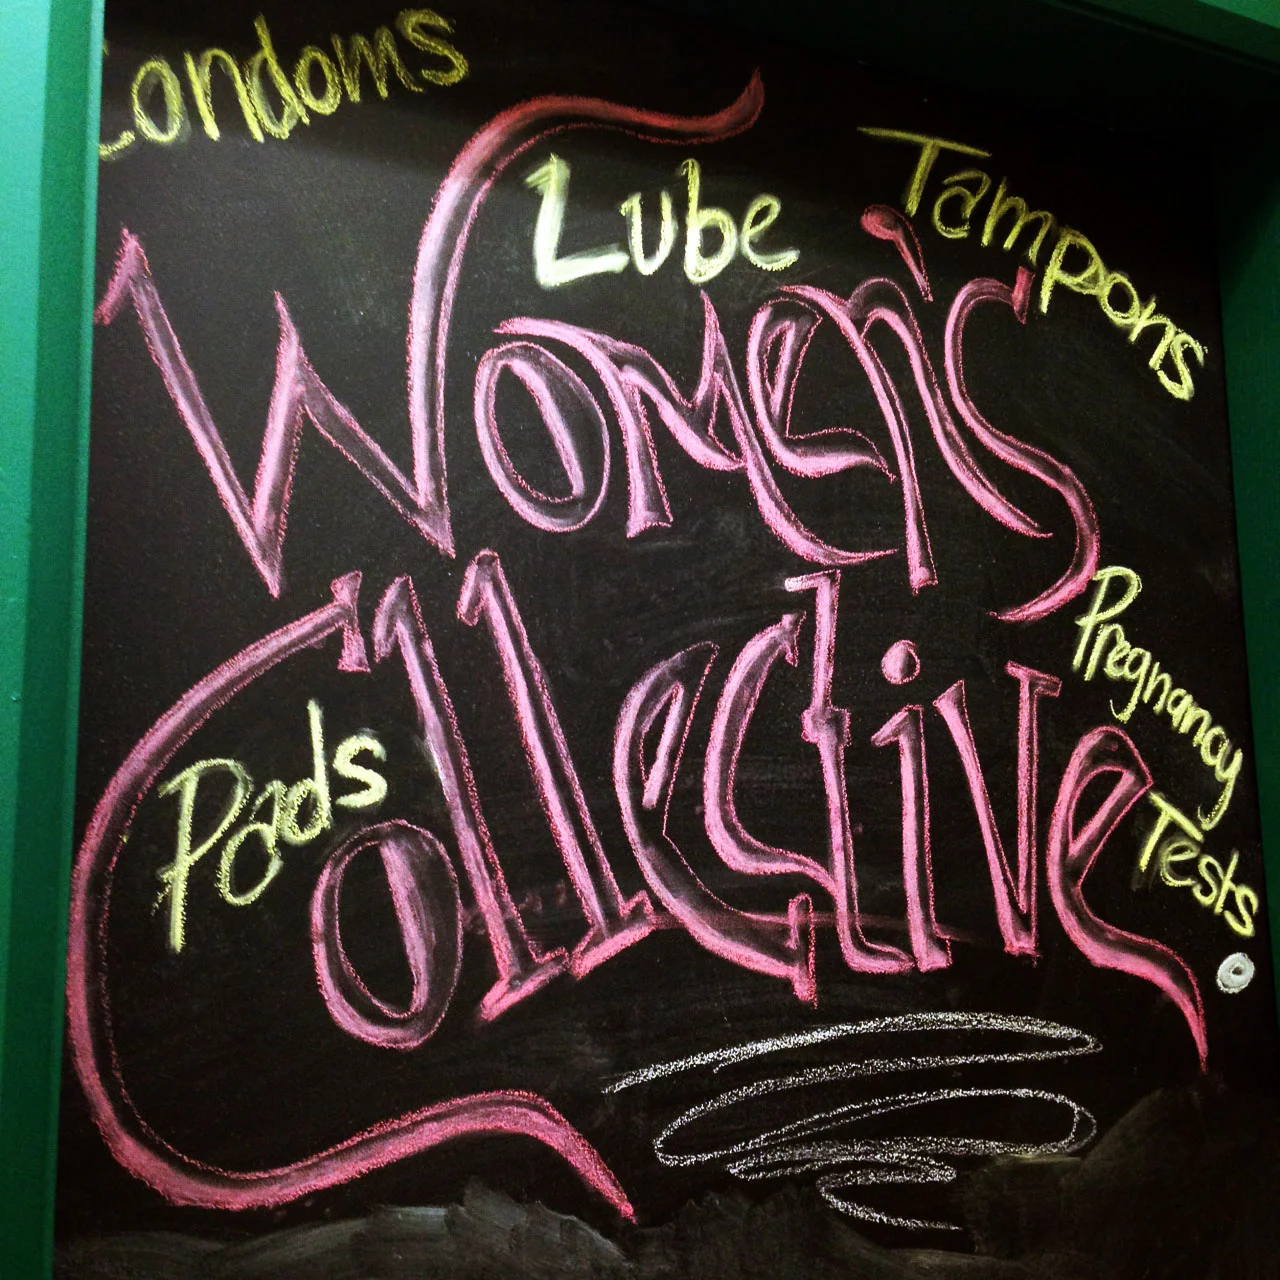 Condoms
Lube
Tampons
Women's
Collective
Pads
Pregnancy
Tests